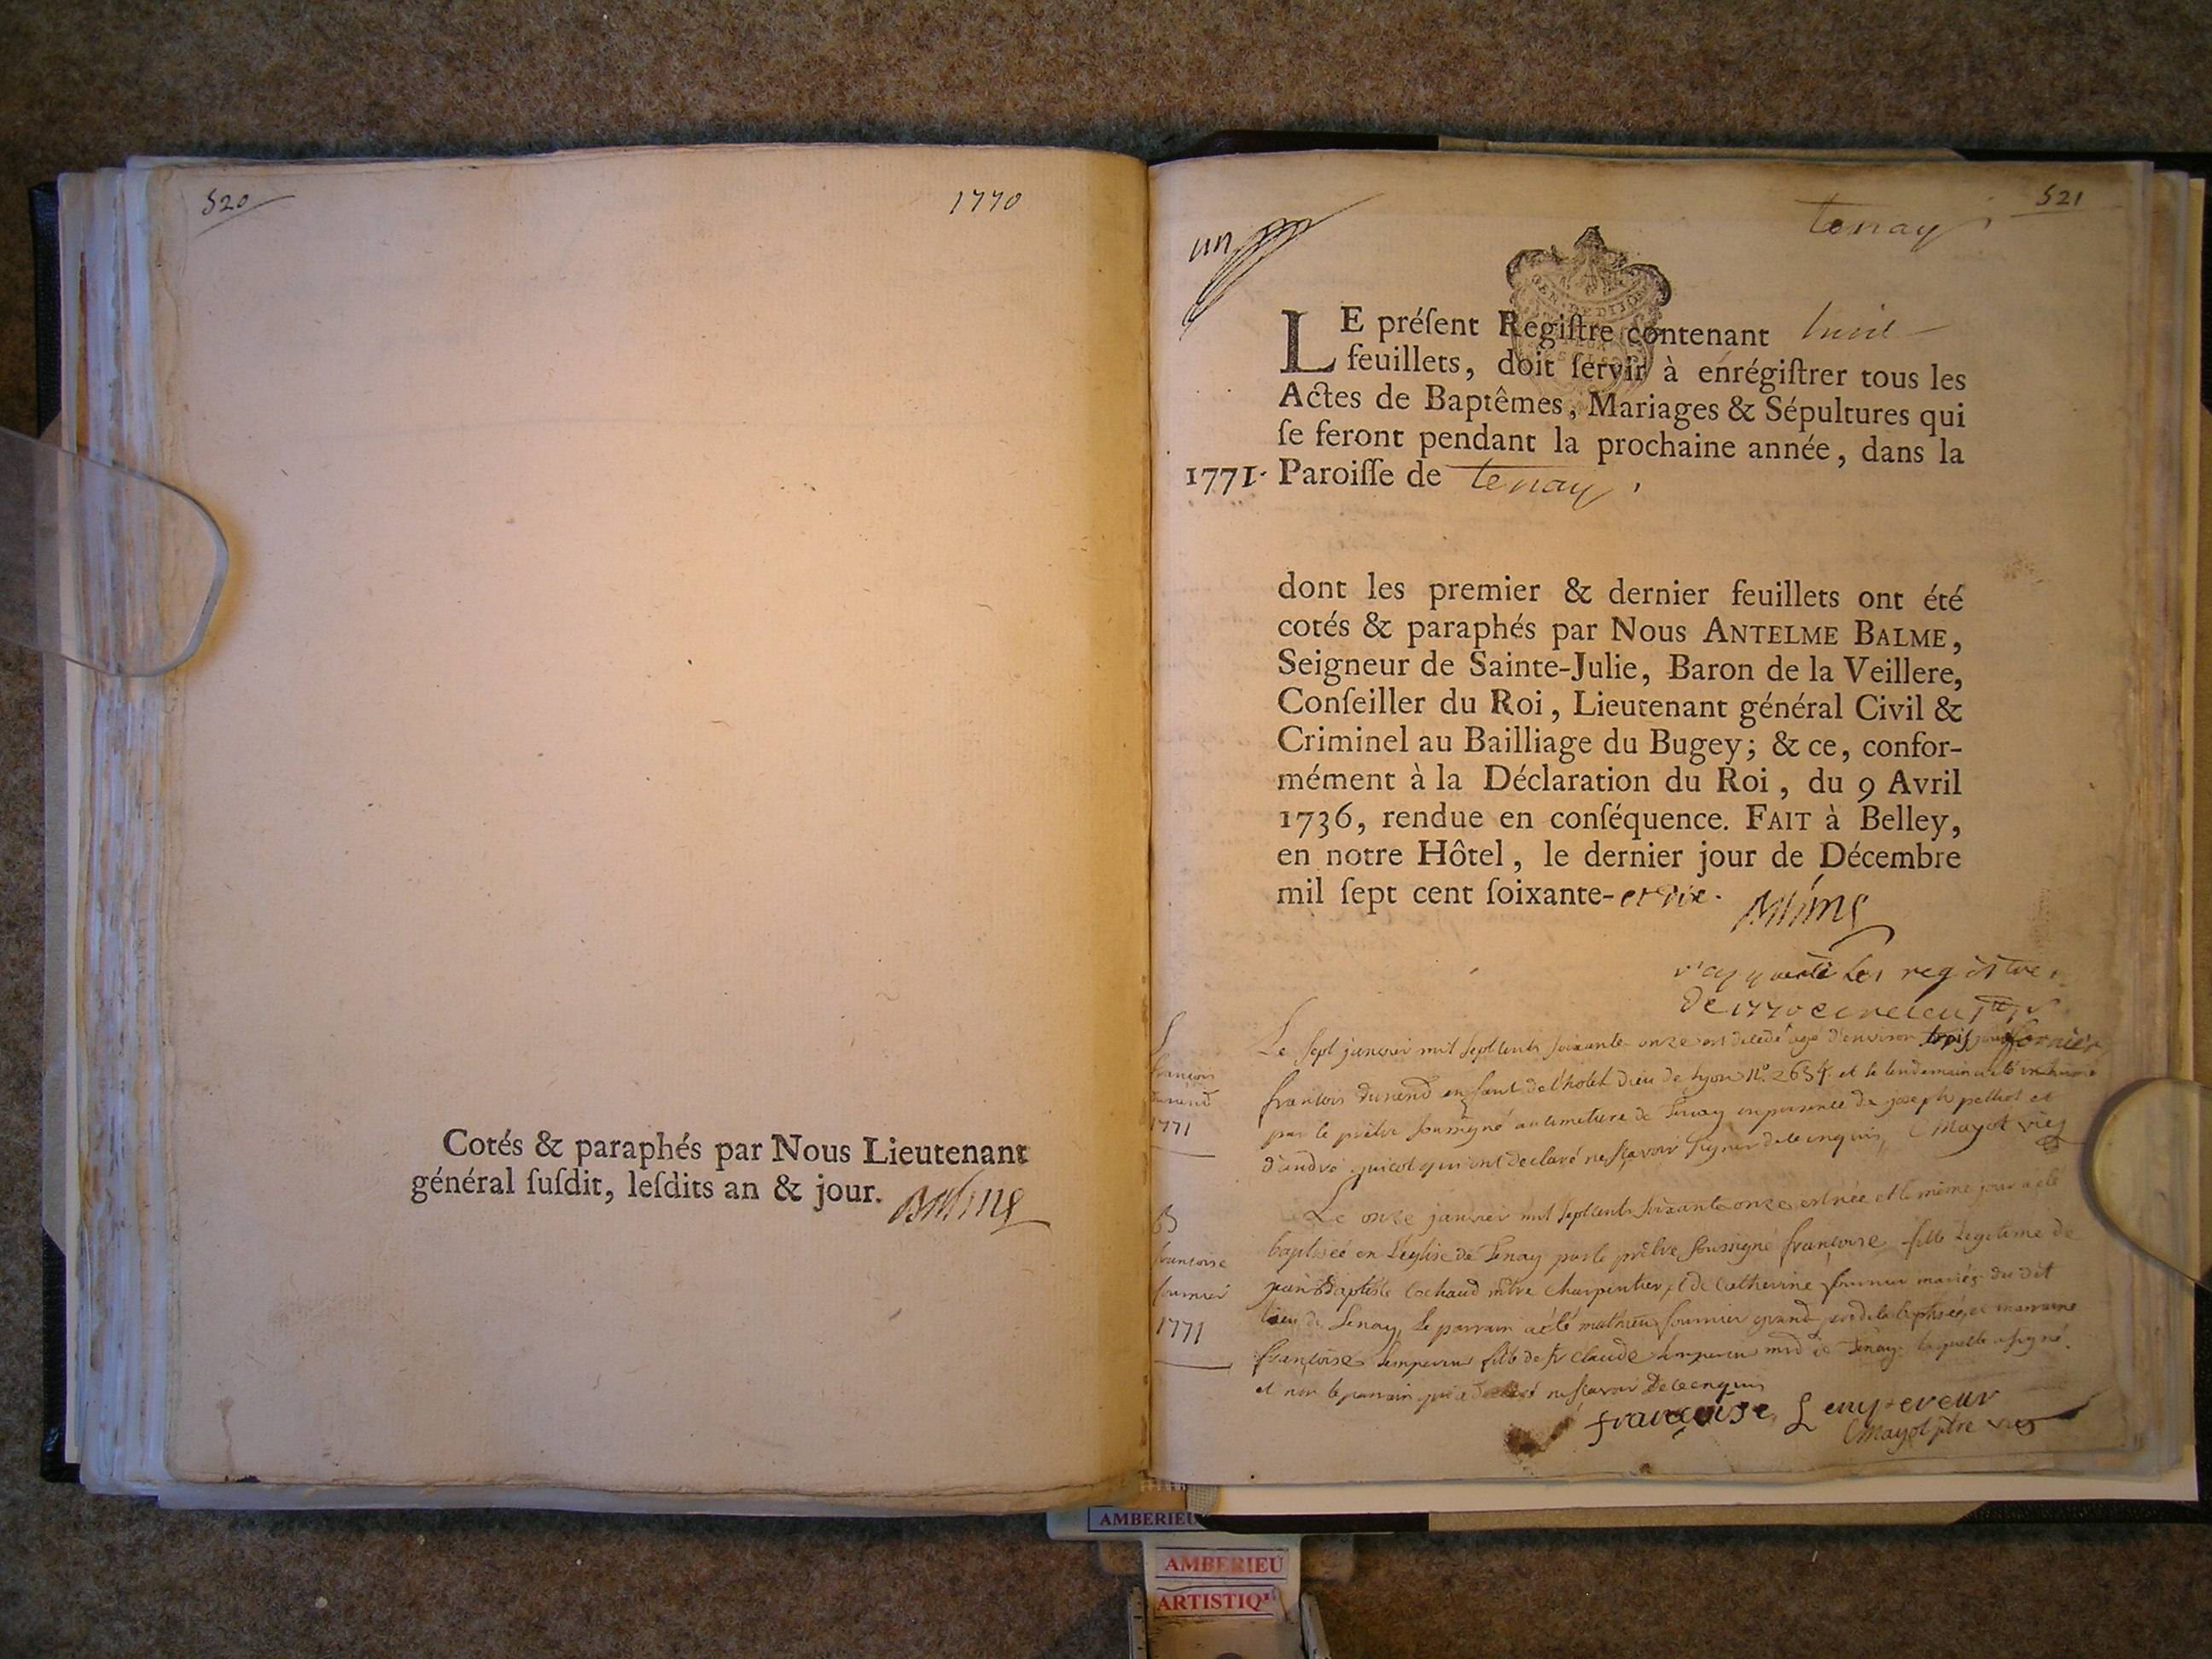 520
1770
Cotés & paraphés par Nous Lieutenant
général ſuſdit, leſdits an & jour. Balme
521
tenay
un
LE préſent Regiſtre contenant huit
feuillets, doit ſervir à enrégiſtrer tous les
Actes de Baptêmes, Mariages & Sépultures qui
ſe feront pendant la prochaine année, dans la
1771. Paroiſſe de tenay,
dont les premier & dernier feuillets ont été
cotés & paraphés par Nous ANTELME BALME,
Seigneur de Sainte-Julie, Baron de la Veillere,
Conſeiller du Roi, Lieutenant général Civil &
Criminel au Bailliage du Bugey; & ce, confor-
mément à la Déclaration du Roi, du 9 Avril
1736, rendue en conſéquence. FAIT à Belley,
en notre Hôtel, le dernier jour de Décembre
mil ſept cent ſoixante-et dix. Balme
les registres
de 1770
S
françois
durend
1771
Le sept janvier mil sept cents soixante onze est décédé agé d'environ trois
francois durend enfant de l'hotel dieu de Lyon N° 2654 et le lendemain a été inhumé
par le prêtre soussigné au cimetiere de Tenay en presence de joseph pelliot et
d'andré guicot qui ont declaré ne sçavoir signer de ce enquis, Mayot vic
B
francoise
fournier
1771
Le onze janvier mil sept cents soixante onze est née et le même jour a été
baptiseé en L'église de Tenay par le prêtre soussigné francoise fille Legitime de
jean Baptiste Cochaud mtre charpentier et de Catherine fournier mariés du dit
lieu de Tenay, le parrain a été mathieu fournier grand pere de la baptiseé, et marraine
françoise Lempereur fille de Sr claude Lempereur md de Tenay laquelle a signé
et non le parrain qui a declaré ne sçavoir de ce enquis
françoise Lempereur
Mayot ptre vic
AMBERIEU
AMBERIEU
ARTISTIQ